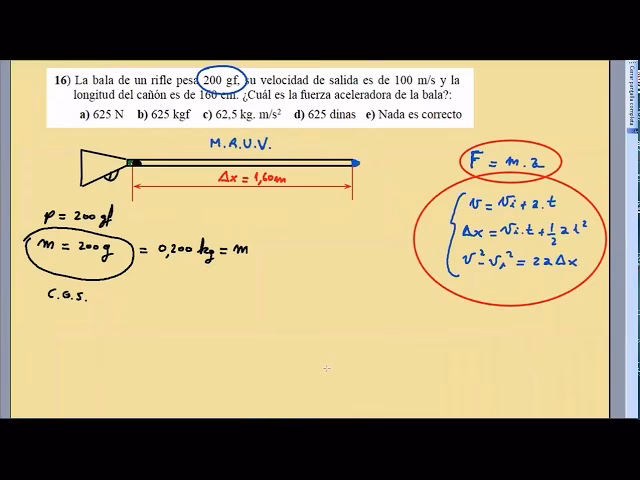 16) La bala de un rifle pesa 200 gf, su velocidad de salida es de 100 m/s y la
longitud del cañón es de 160 cm. ¿Cuál es la fuerza aceleradora de la bala?:
a) 625 N b) 625 kgf c) 62,5 kg. m/s² d) 625 dinas e) Nada es correcto
M.R.U.V.
Δx = 1,60m
F = m.a
p = 200 gf
m = 200g = 0,200 kg = m
C.G.S.
v = vi + a.t
Δx = vi.t + 1/2 a t²
v² - vi² = 2aΔx
Cerrar pantalla completa